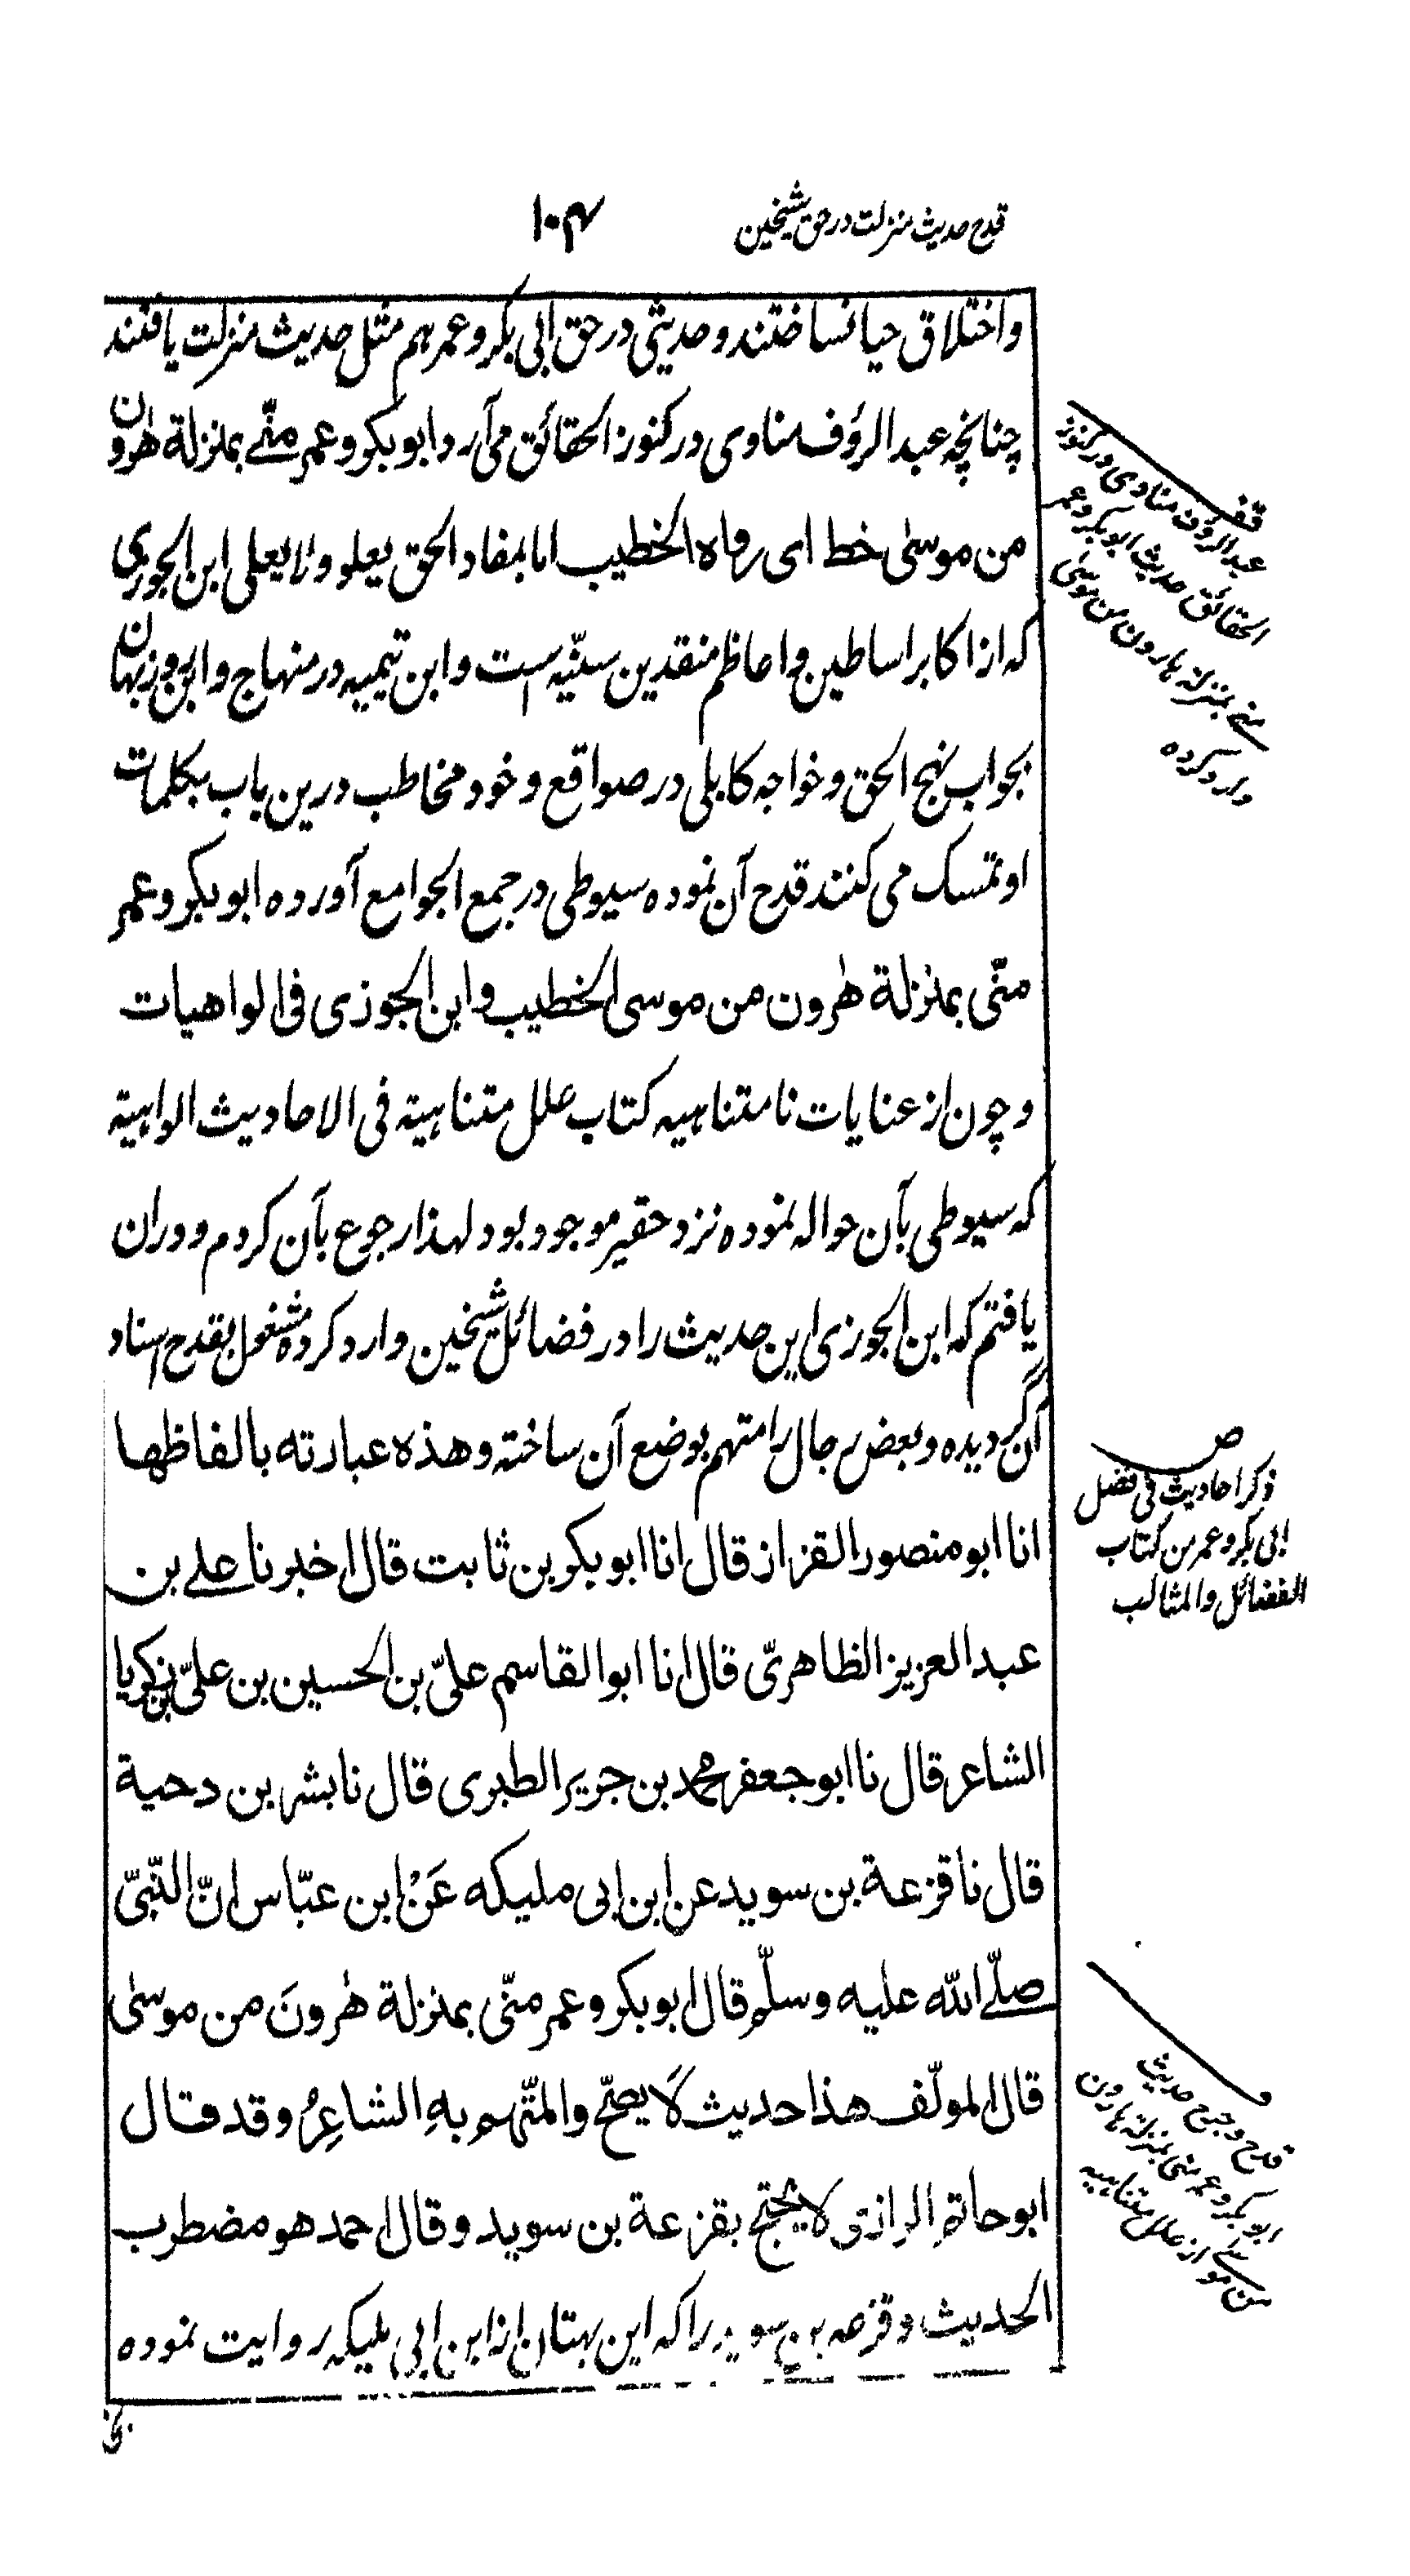 قدح حدیث منزلت در حق شیخین
۱۰۴
واختلاق حیا نساختند و حدیثی در حق ابی بکر و عمر هم مثل حدیث منزلت یافتند
چنانچه عبد الرؤف مناوی در کنوز الحقائق می آرد ابو بکر و عمر منّے بمنزلة هٰرون
من موسیٰ خط ای رواه الخطیب اما بمفاد الحق یعلو ولا یعلی ابن الجوزی
که از اکابر اساطین و اعاظم منقدین سنّیه است و ابن تیمیه در منهاج و ابن روزبهان
بجواب نهج الحق و خواجه کابلی در صواقع و خود مخاطب درین باب بکلمات
او تمسک می کنند قدح آن نموده سیوطی در جمع الجوامع آورده ابو بکر و عمر
منّی بمنزلة هٰرون من موسی الخطیب و ابن الجوزی فی الواهیات
و چون از عنایات نامتناهیه کتاب علل متناهیة فی الاحادیث الواهیة
که سیوطی بآن حواله نموده نزد حقیر موجود بود لهذا رجوع بآن کردم و دران
یافتم که ابن الجوزی این حدیث را در فضائل شیخین وارد کرده مشغول بقدح اسناد
آن گردیده و بعض رجال را متهم بوضع آن ساخته وهذه عبارته بالفاظها
انا ابو منصور القزاز قال انا ابو بکر بن ثابت قال اخبرنا علے بن
عبد العزیز الظاهریّ قال انا ابو القاسم علیّ بن الحسین بن علیّ بن زکریا
الشاعر قال نا ابو جعفر محمد بن جریر الطبری قال نا بشر بن دحیة
قال نا قزعة بن سوید عن ابن ابی ملیکه عَنْ ابن عبّاس انّ النّبیّ
صلّے الله علیه وسلّم قال ابو بکر و عمر منّی بمنزلة هٰرونَ من موسیٰ
قال المولّف هذا حدیث لَا یصحّ والمتّهم بهِ الشاعِرُ وقد قال
ابو حاتم الرازی لا یحتج بقزعة بن سوید وقال احمد هو مضطرب
الحدیث و قزعه بن سوید را که این بهتان از ابن ابی ملیکه روایت نموده
قف
عبد الرؤف مناوی در کنوز
الحقائق حدیث ابو بکر و عمر
منے بمنزلة هارون من موسیٰ
وارد کرده
ص
ذکر احادیث فی فضل
ابی بکر و عمر من کتاب
الفضائل والمثالب
قدح و جرح حدیث
ابو بکر و عمر منی بمنزلة هارون
من موسے از علل متناهیه